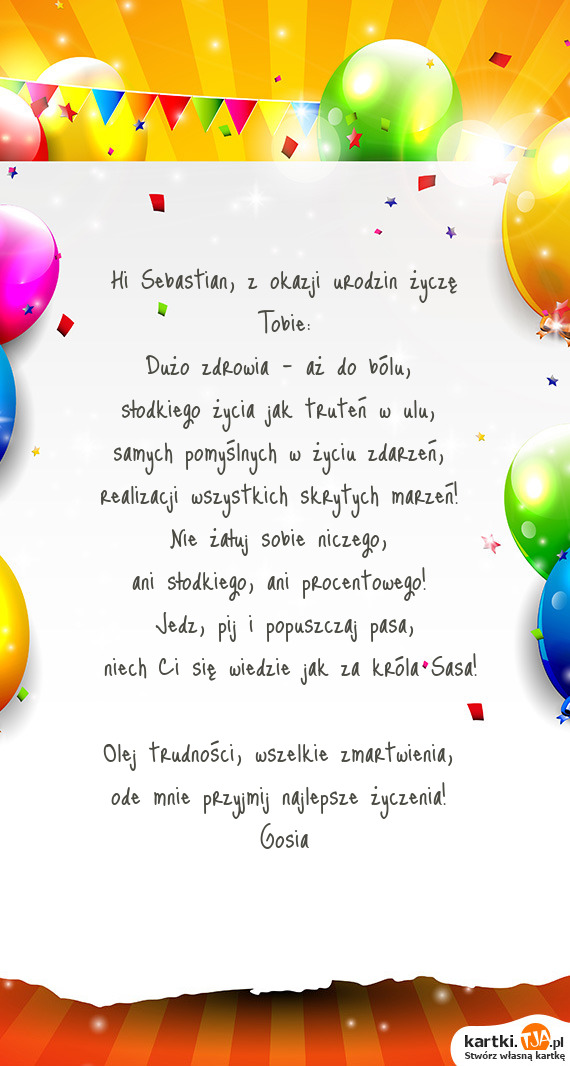 Hi Sebastian, z okazji urodzin życzę
Tobie:
Dużo zdrowia - aż do bólu,
słodkiego życia jak truteń w ulu,
samych pomyślnych w życiu zdarzeń,
realizacji wszystkich skrytych marzeń!
Nie żałuj sobie niczego,
ani słodkiego, ani procentowego!
Jedz, pij i popuszczaj pasa,
niech Ci się wiedzie jak za króla Sasa!
Olej trudności, wszelkie zmartwienia,
ode mnie przyjmij najlepsze życzenia!
Gosia
kartki.TJA.pl
Stwórz własną kartkę